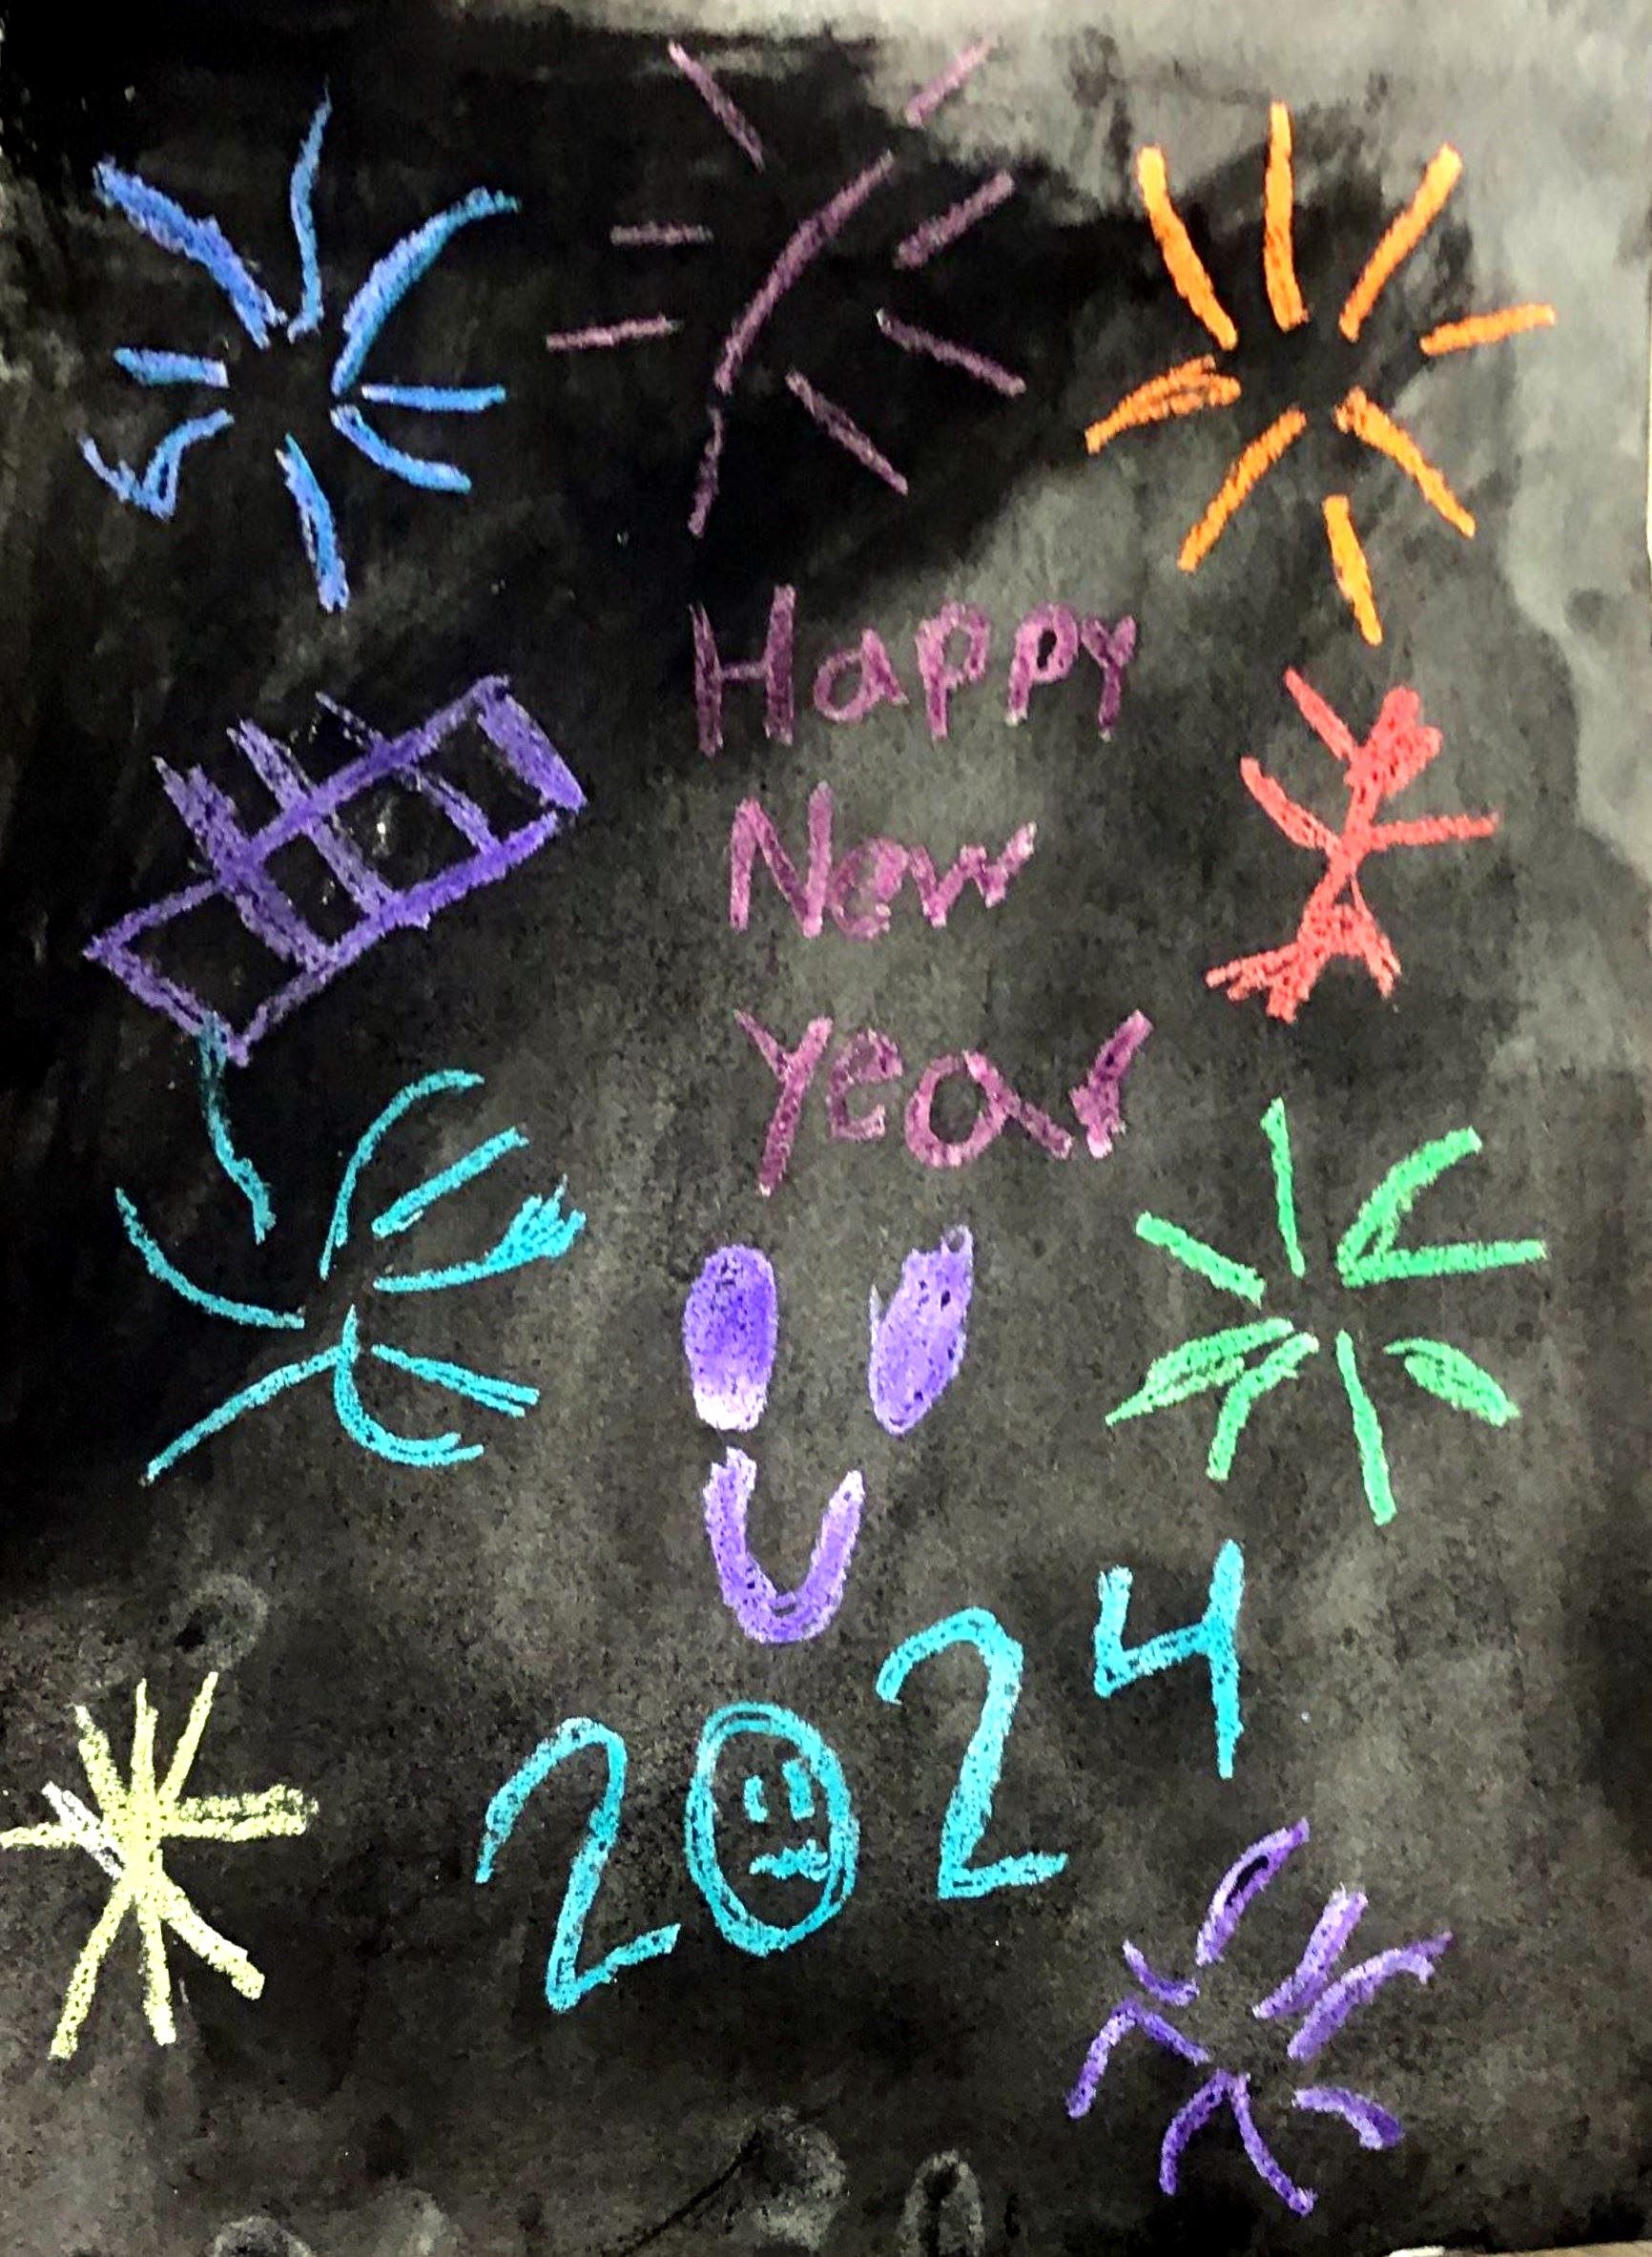 Happy
New
Year
2024